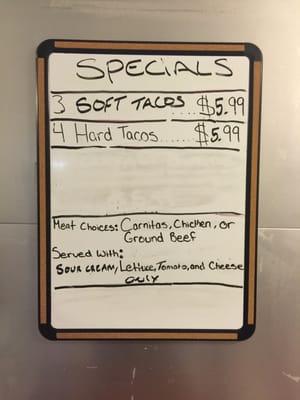 SPECIALS
3 SOFT TACOS ..... $5.99
4 Hard Tacos ..... $5.99
Meat Choices: Carnitas, Chicken, or
Ground Beef
Served With:
SOUR CREAM, Lettuce, Tomato, and Cheese
ONLY